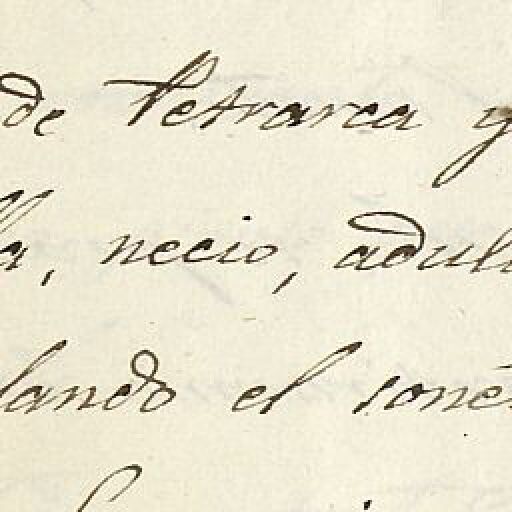 de Petrarca y
la, necio, adul
lando el soné